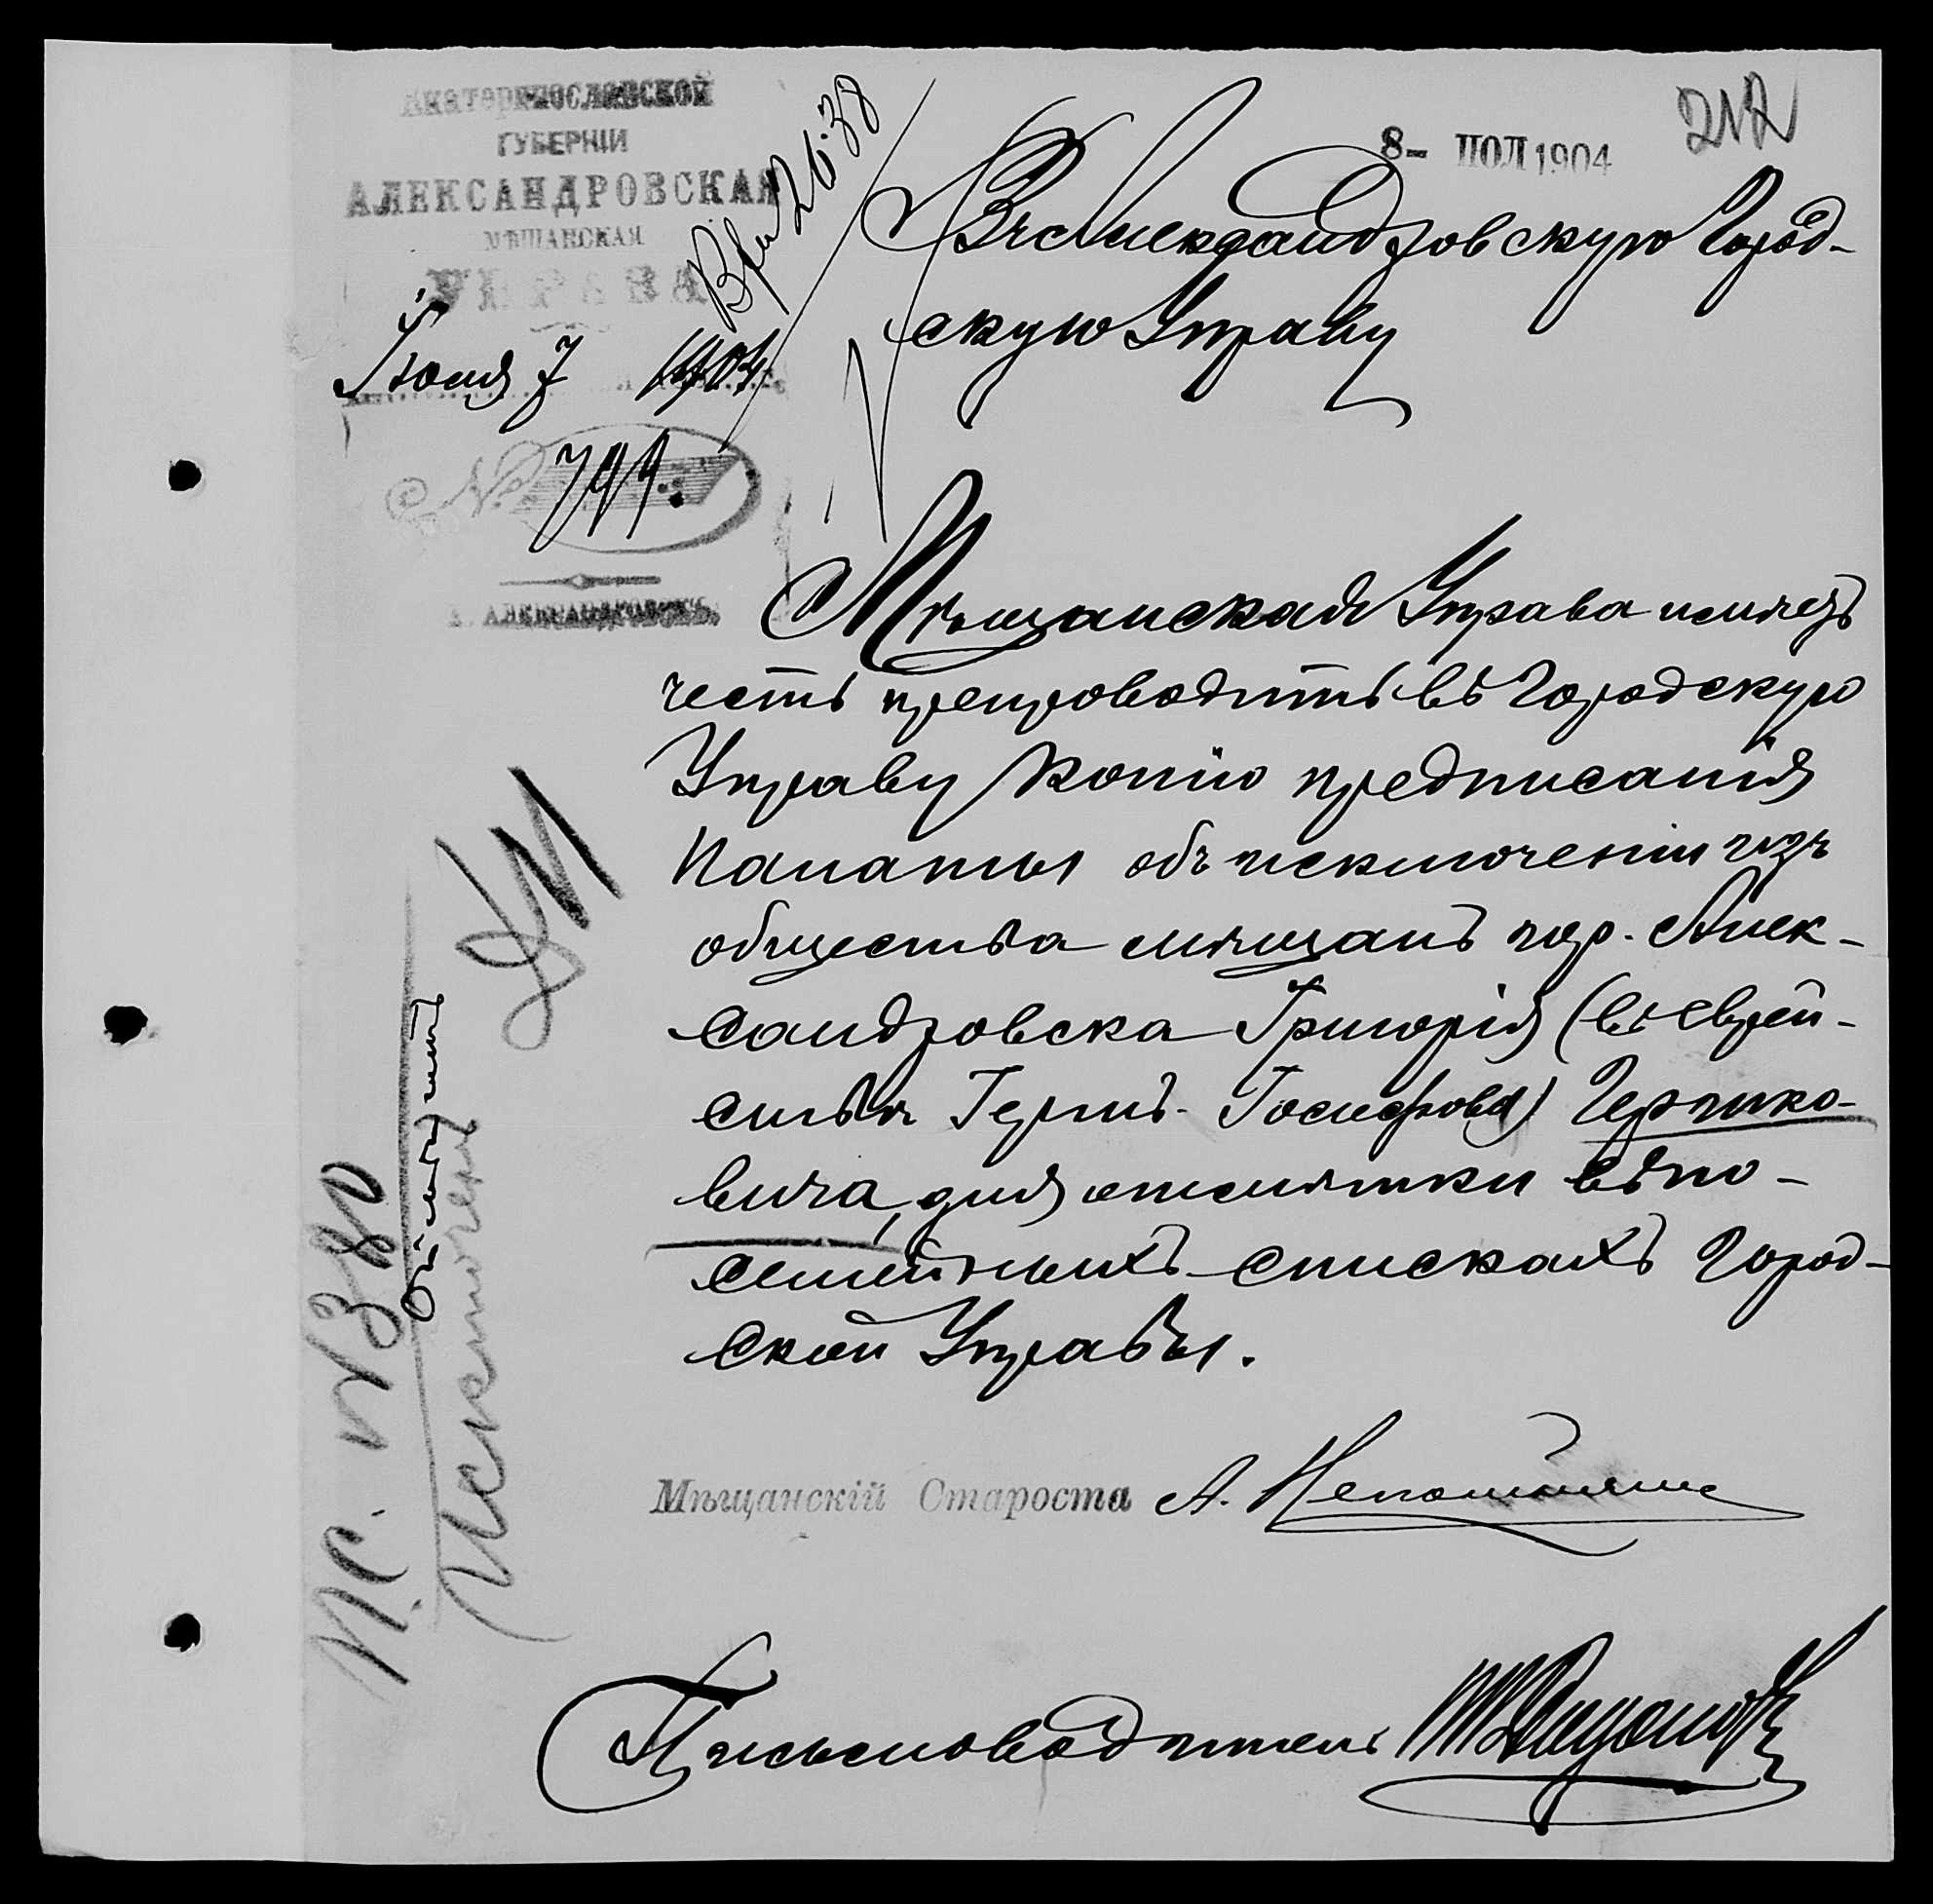 Екатеринославской
ГУБЕРНІИ
АЛЕКСАНДРОВСКАЯ
МѢЩАНСКАЯ
УПРАВА
Іюля 7 1904
№
г. АЛЕКСАНДРОВСКЪ.
8- ІЮЛ 1904
Въ Александровскую Город-
скую Управу
Мѣщанская Управа имѣетъ
честь препроводить въ Городскую
Управу копію предписанія
Палаты объ исключеніи изъ
общества мѣщанъ гор. Алек-
сандровска Григорія (въ еврей-
ствѣ Герша Іосифова) Гершко-
вича, для отмѣтки въ по-
семейныхъ спискахъ Город-
ской Управы.
Мѣщанскій Староста А.
Письмоводитель
М.С. № 380
Исключенъ